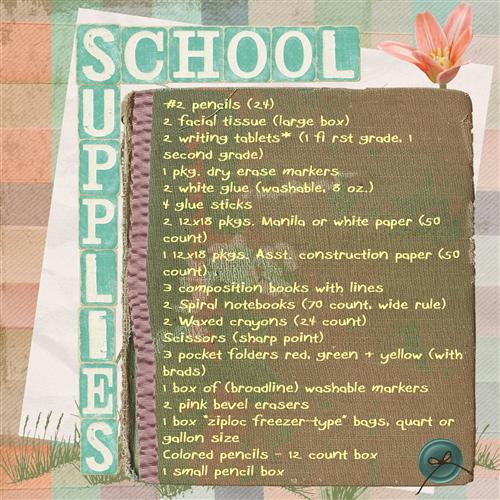 SCHOOL
SUPPLIES
#2 pencils (24)
2 facial tissue (large box)
2 writing tablets* (1 fi rst grade, 1
second grade)
1 pkg. dry erase markers
2 white glue (washable, 8 oz.)
4 glue sticks
2 12x18 pkgs. Manila or white paper (50
count)
1 12x18 pkgs. Asst. construction paper (50
count)
3 composition books with lines
2 Spiral notebooks (70 count, wide rule)
2 Waxed crayons (24 count)
Scissors (sharp point)
3 pocket folders red, green + yellow (with
brads)
1 box of (broadline) washable markers
2 pink bevel erasers
1 box "ziploc freezer-type" bags, quart or
gallon size
Colored pencils - 12 count box
1 small pencil box